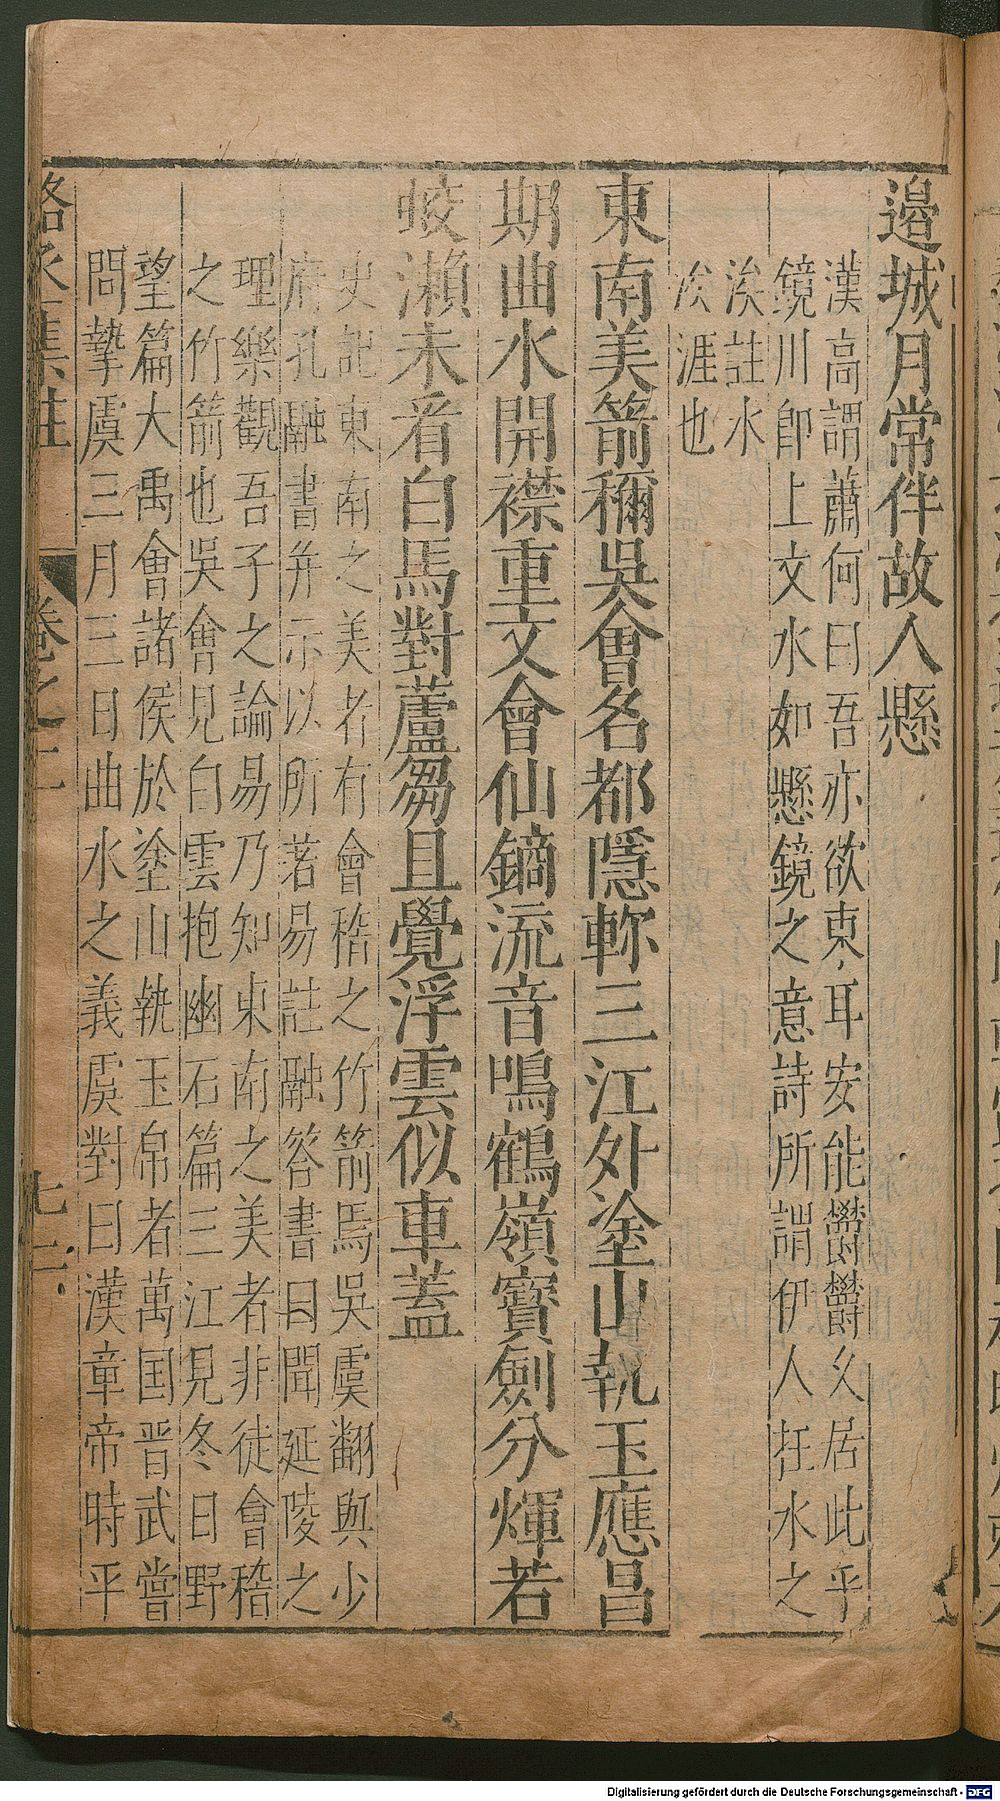 邉城月常伴故人懸
漢高謂蕭何曰吾亦欲東耳安能鬱鬱久居此乎
鏡川卽上文水如懸鏡之意詩所謂伊人在水之
涘註水
涘涯也
東南美箭稱吳會名都隱軫三江外塗山執玉應昌
期曲水開襟重文會仙鏑流音鳴鶴嶺寳劍分輝若
蛟瀨未看白馬對蘆芻且覺浮雲似車蓋
史記東南之美者有會稽之竹箭焉吳虞翻與少
府孔融書幷示以所著易註融答書曰聞延陵之
理樂觀吾子之論易乃知東南之美者非徒會稽
之竹箭也吳會見白雲抱幽石篇三江見冬日野
望篇大禹會諸侯於塗山執玉帛者萬国晋武嘗
問摯虞三月三日曲水之義虞對曰漢章帝時平
駱丞集註
卷之二
七二
Digitalisierung gefördert durch die Deutsche Forschungsgemeinschaft - DFG